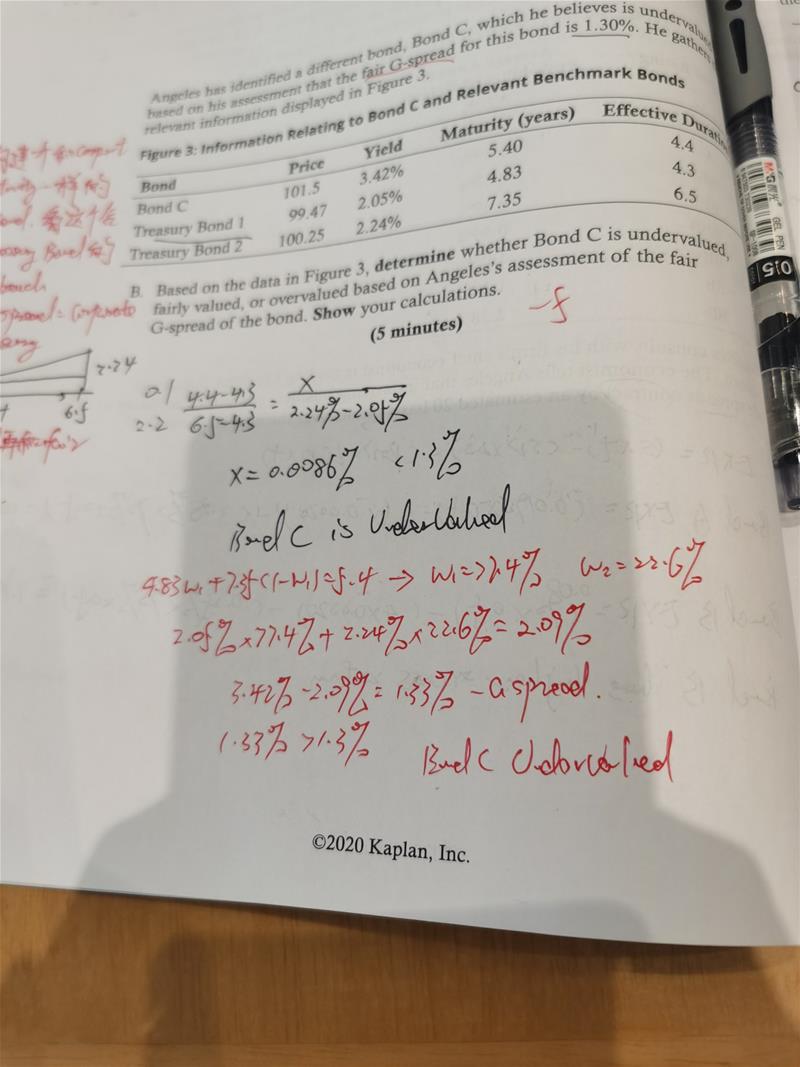 Angeles has identified a different bond, Bond C, which he believes is undervalued
based on his assessment that the fair G-spread for this bond is 1.30%. He gathers
relevant information displayed in Figure 3.
Figure 3: Information Relating to Bond C and Relevant Benchmark Bonds
Bond Price Yield Maturity (years) Effective Duratio
Bond C 101.5 3.42% 5.40 4.4
Treasury Bond 1 99.47 2.05% 4.83 4.3
Treasury Bond 2 100.25 2.24% 7.35 6.5
B. Based on the data in Figure 3, determine whether Bond C is undervalued,
fairly valued, or overvalued based on Angeles's assessment of the fair
G-spread of the bond. Show your calculations.
(5 minutes)
-5
2.24
6.5
0.1
2.2
4.4-4.3 / 6.5-4.3 = X / 2.24%-2.05%
X=0.0086% <1.3%
Bond C is Undervalued
4.83w₁+7.35(1-w₁)=5.4 → w₁=77.4% w₂=22.6%
2.05%×77.4%+2.24%×22.6%=2.09%
3.42%-2.09%=1.33% -G spread.
1.33%>1.3% Bond C Undervalued
©2020 Kaplan, Inc.
M&G
GEL PEN
0.5